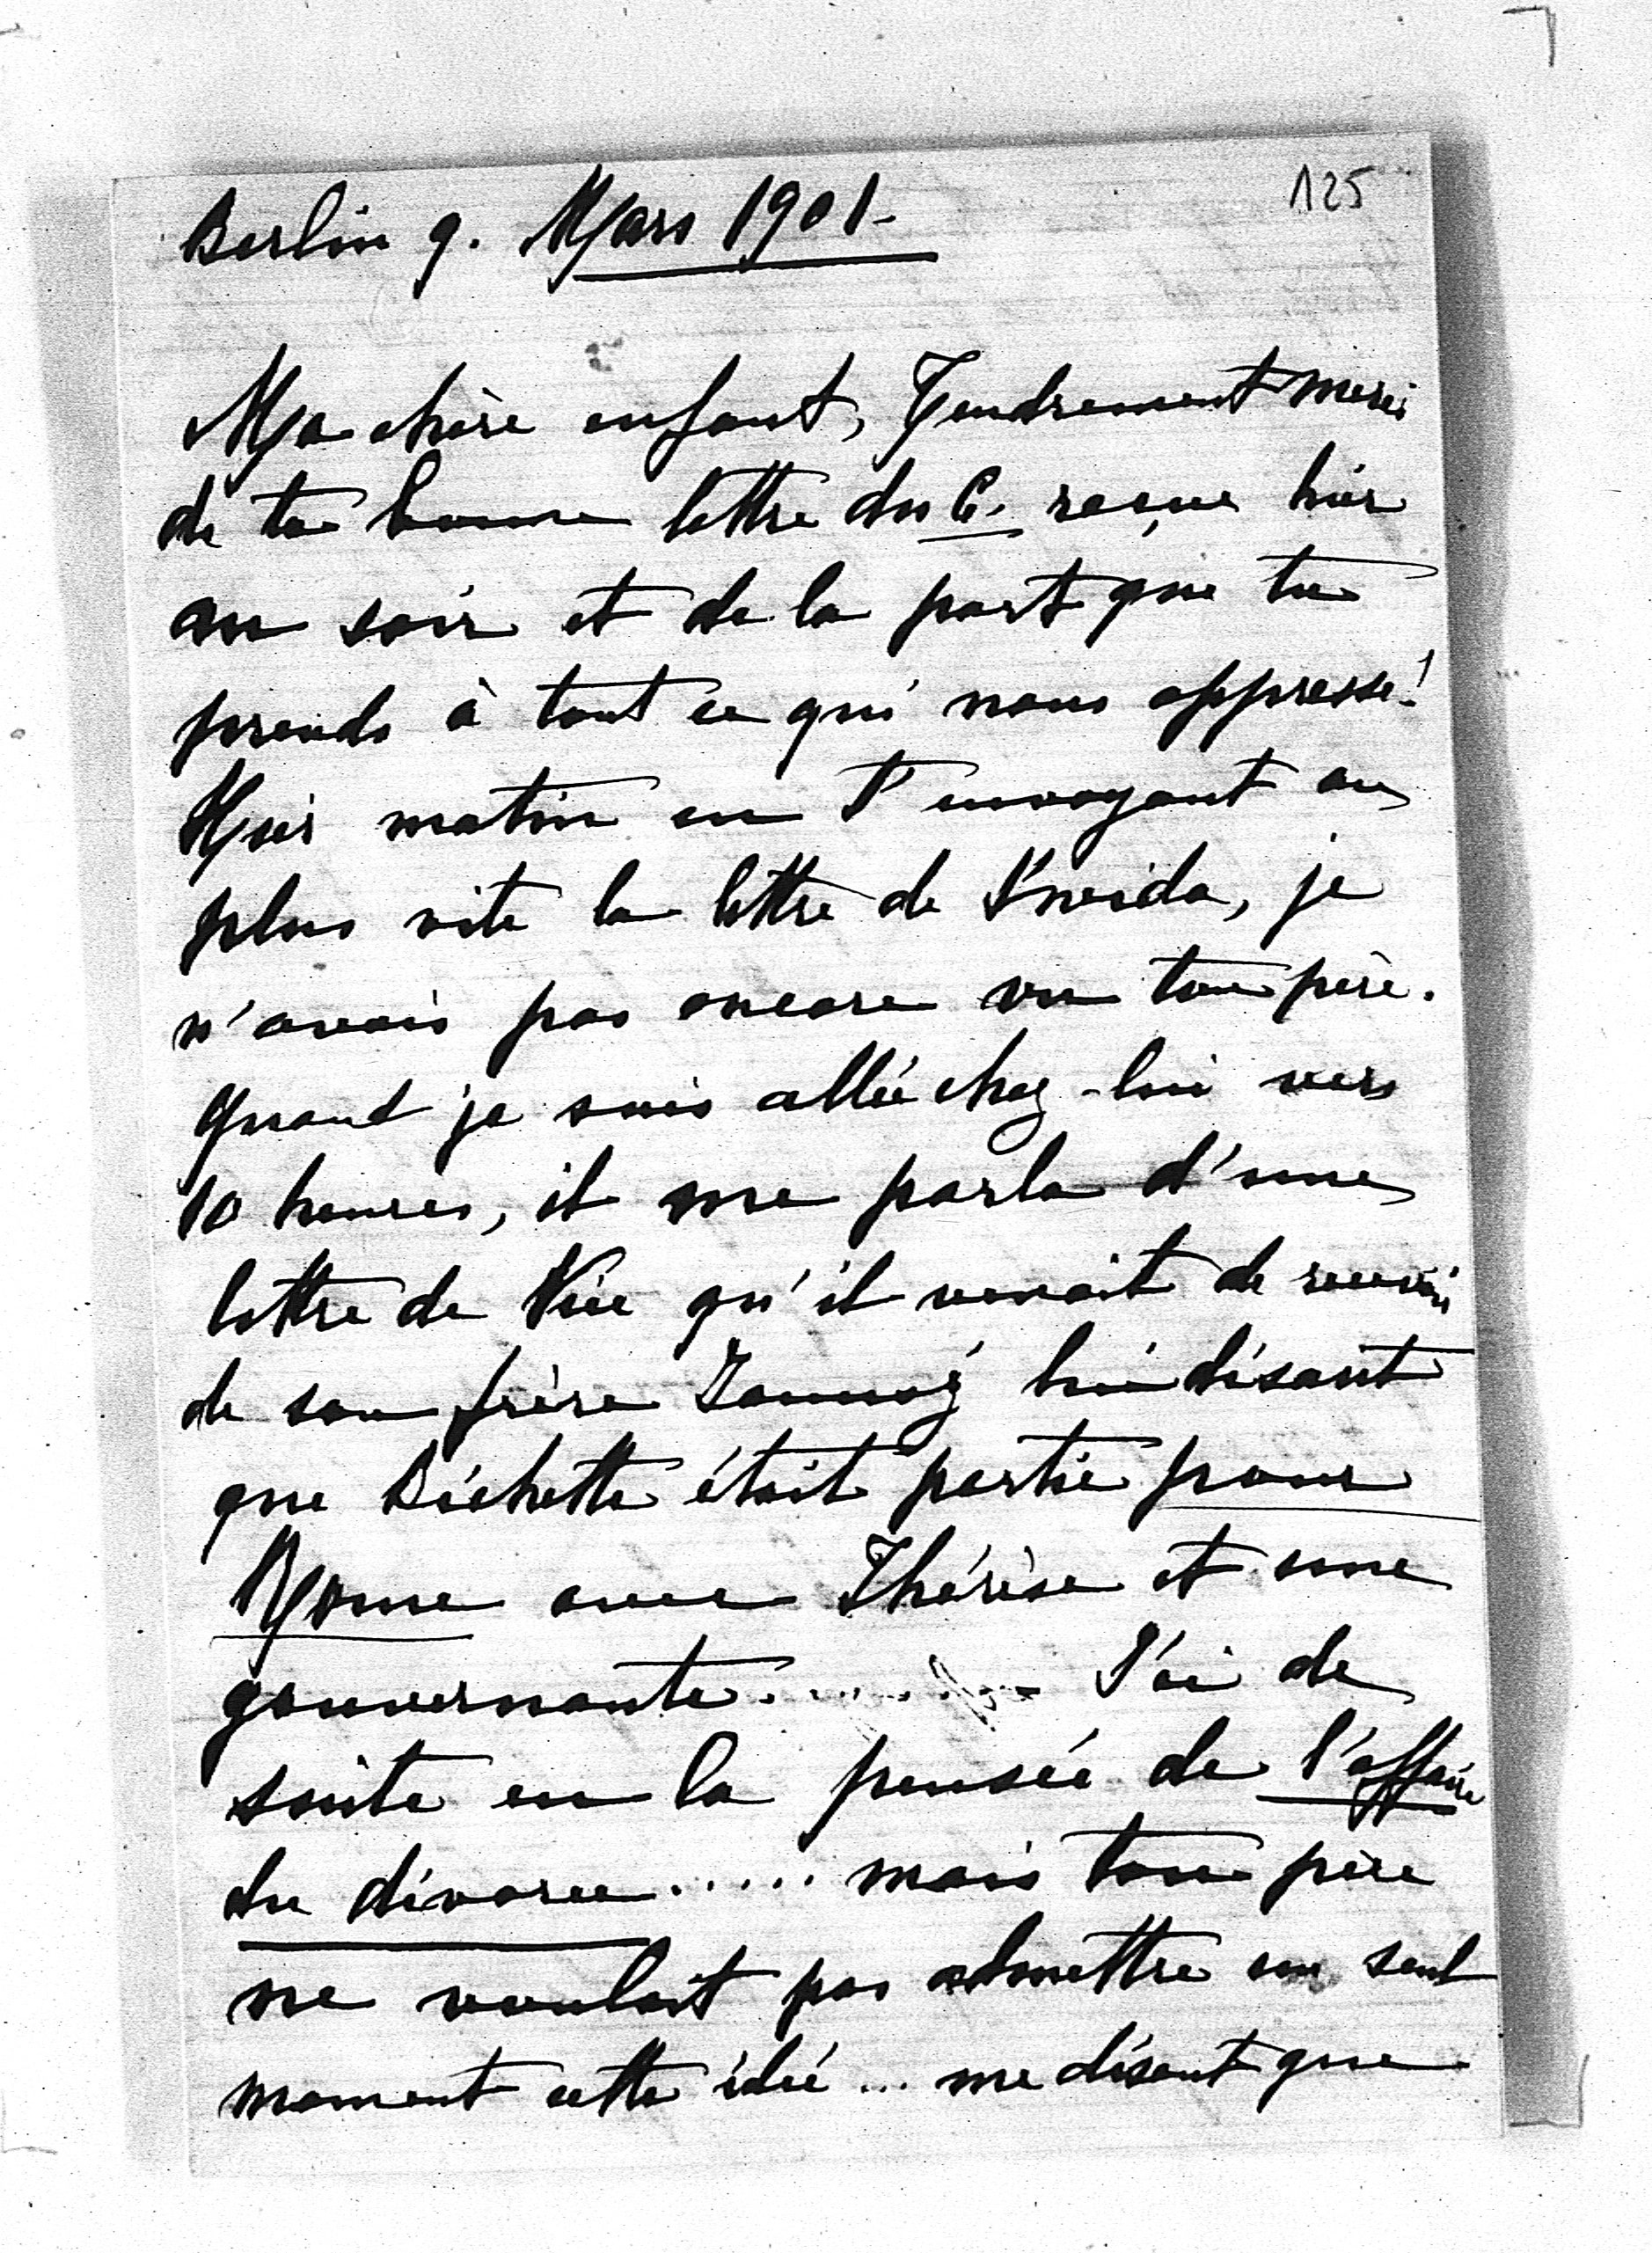 125
Berlin 9. Mars 1901-
Ma chère enfant, Tendrement merci
de ta bonne lettre du 6. reçue hier
au soir et de la part que tu
prends à tout ce qui nous oppresse!
Hier matin en t'envoyant au
plus vite la lettre de , je
n'avais pas encore vu ton père.
Quand je suis allée chez-lui vers
10 heures, il me parla d'une
lettre de Nice qu'il venait de recevoir
de son frère lui disant
que Bichette était partie pour
Rome avec Thérèse et une
gouvernante....... J'ai de
suite eu la pensée de l'affaire
du divorce..... mais ton père
ne voulait pas admettre un seul
moment cette idée... me disant que